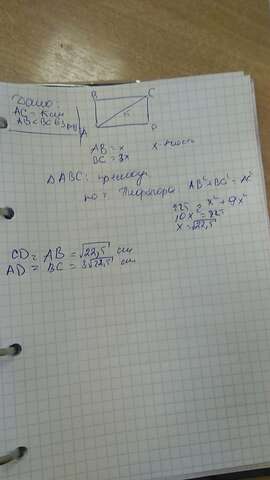 Дано:
B C
AC = 15см
AB < BC в 3 раза
15
A D
AB = x
BC = 3x
x-
△ABC: прямоуг
по т. Пифагора: AB² + BC² = AC²
225 = x² + 9x²
10x² = 225
x = √22,5
CD = AB = √22,5 см
AD = BC = 3√22,5 см